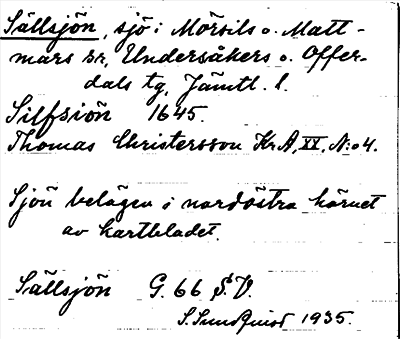 Sällsjön, sjö i Mörsils o. Matt-
mars sr, Undersåkers o. Offer-
dals tg, Jämtl. l.
Silfsiön 1645.
Thomas Christersson KrA, XX, N:o 4.
Sjön belägen i nordöstra hörnet
av kartbladet.
Sällsjön G. 66 S.V.
S. Sundquist 1935.